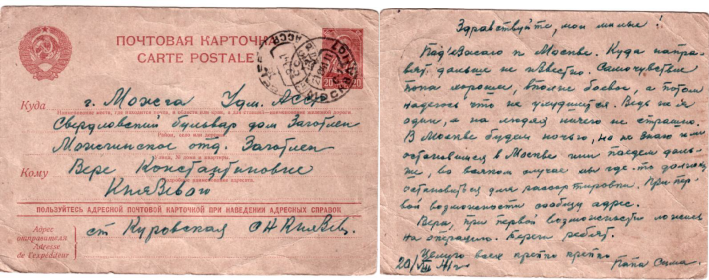 ПОЧТОВАЯ КАРТОЧКА
CARTE POSTALE
20
Куда г. Можга Удм. АССР
Свердловский бульвар дом Заготлен
Можгинское отд. Заготлен
Кому Вере Константиновне
Князевой
ПОЛЬЗУЙТЕСЬ АДРЕСНОЙ ПОЧТОВОЙ КАРТОЧКОЙ ПРИ НАВЕДЕНИИ АДРЕСНЫХ СПРАВОК
Адрес
отправителя
Adresse
de l'expéditeur
ст Куровская
Здравствуйте, мои милые!
Подъезжаю к Москве. Куда направят
дальше не известно. Самочувствие
пока хорошее, вполне боевое, а потом
надеюсь что не ухудшится. Ведь не я
один, а на людях ничего не страшно.
В Москве будем ночью, но не знаю или
остановимся в Москве или поедем дальше,
во всяком случае мы где-то должны
остановиться для рассортировки. При первой
возможности сообщу адрес.
Вера, при первой возможности ложись
на операцию. Береги ребят.
Целую всех крепко крепко
Папа Сима.
20/VIII 41г